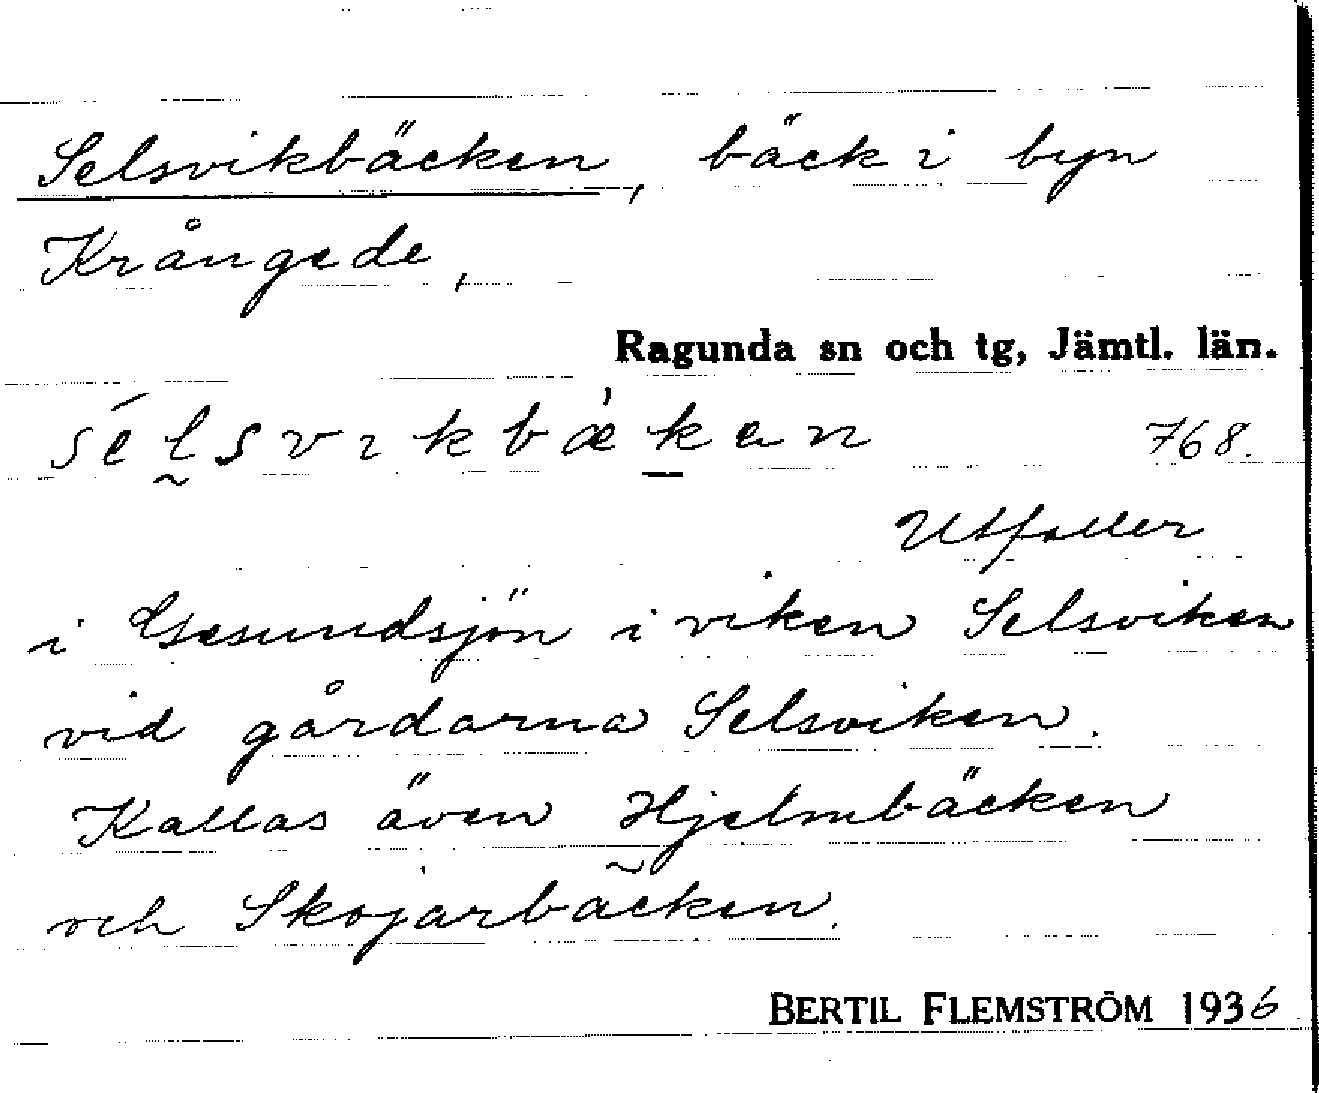 Selsvikbäcken, bäck i byn
Krångede,
Ragunda sn och tg, Jämtl. län.
sélsvıkbæ̀ken 768.
Utfaller
i Gesundsjön i viken Selsviken
vid gårdarna Selsviken.
Kallas även Hjelmbäcken
och Skojarbäcken.
BERTIL FLEMSTRÖM 1936